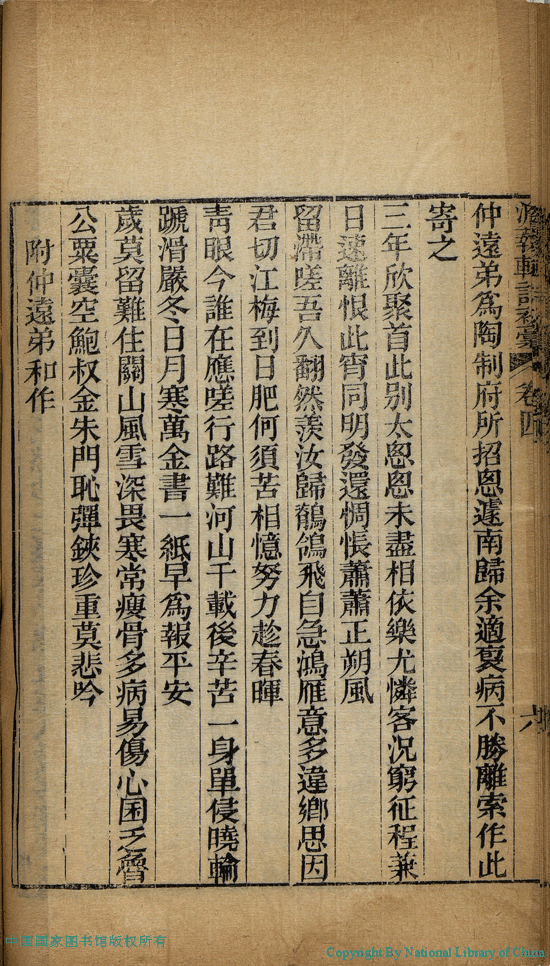 卷四
六
仲遠弟爲陶制府所招悤遽南歸余適褱病不勝離索作此
寄之
三年欣聚首此別太悤悤未盡相依樂尤憐客況窮征程兼
日速離恨此宵同明發還惆悵蕭蕭正朔風
留滯嗟吾久翻然羨汝歸鶺鴒飛自急鴻雁意多違鄉思因
君切江梅到日肥何須苦相憶努力趁春暉
靑眼今誰在應嗟行路難河山千載後辛苦一身單侵曉輪
蹏滑嚴冬日月寒萬金書一紙早爲報平安
歲莫留難住關山風雪深畏寒常瘦骨多病易傷心困乏齊
公粟囊空鮑叔金朱門恥彈鋏珍重莫悲吟
附仲遠弟和作
中国国家图书馆版权所有
Copyright By National Library of China